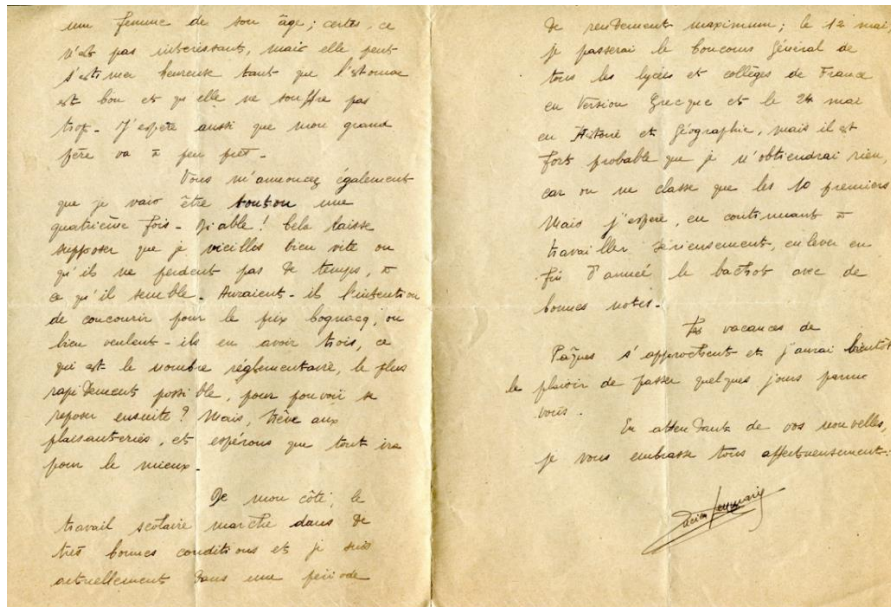 une femme de son âge ; certes, ce
n'est pas intéressant, mais elle peut
s'estimer heureuse tant que l'estomac
est bon et qu'elle ne souffre pas
trop - J'espère aussi que mon grand
père va à peu près -
Vous m'annoncez également
que je vais être tonton une
quatrième fois - Diable ! Cela laisse
supposer que je vieillis bien vite ou
qu'ils ne perdent pas de temps, à
ce qu'il semble - Auraient-ils l'intention
de concourir pour le prix Cognacq, ou
bien veulent-ils en avoir trois, ce
qui est le nombre réglementaire, le plus
rapidement possible, pour pouvoir se
reposer ensuite ? Mais, trève aux
plaisanteries, et espérons que tout ira
pour le mieux -
De mon côté, le
travail scolaire marche dans de
très bonnes conditions et je suis
actuellement dans une période
de rendement maximum ; le 12 mai,
je passerai le Concours Général de
tous les lycées et collèges de France
en Version Grecque et le 24 mai
en Histoire et Géographie, mais il est
fort probable que je n'obtiendrai rien,
car on ne classe que les 10 premiers
Mais j'espère, en continuant à
travailler sérieusement, enlever en
fin d'année le bachot avec de
bonnes notes.
Les vacances de
Pâques s'approchent et j'aurai bientôt
le plaisir de passer quelques jours parmi
vous.
En attendant de vos nouvelles,
je vous embrasse tous affectueusement.